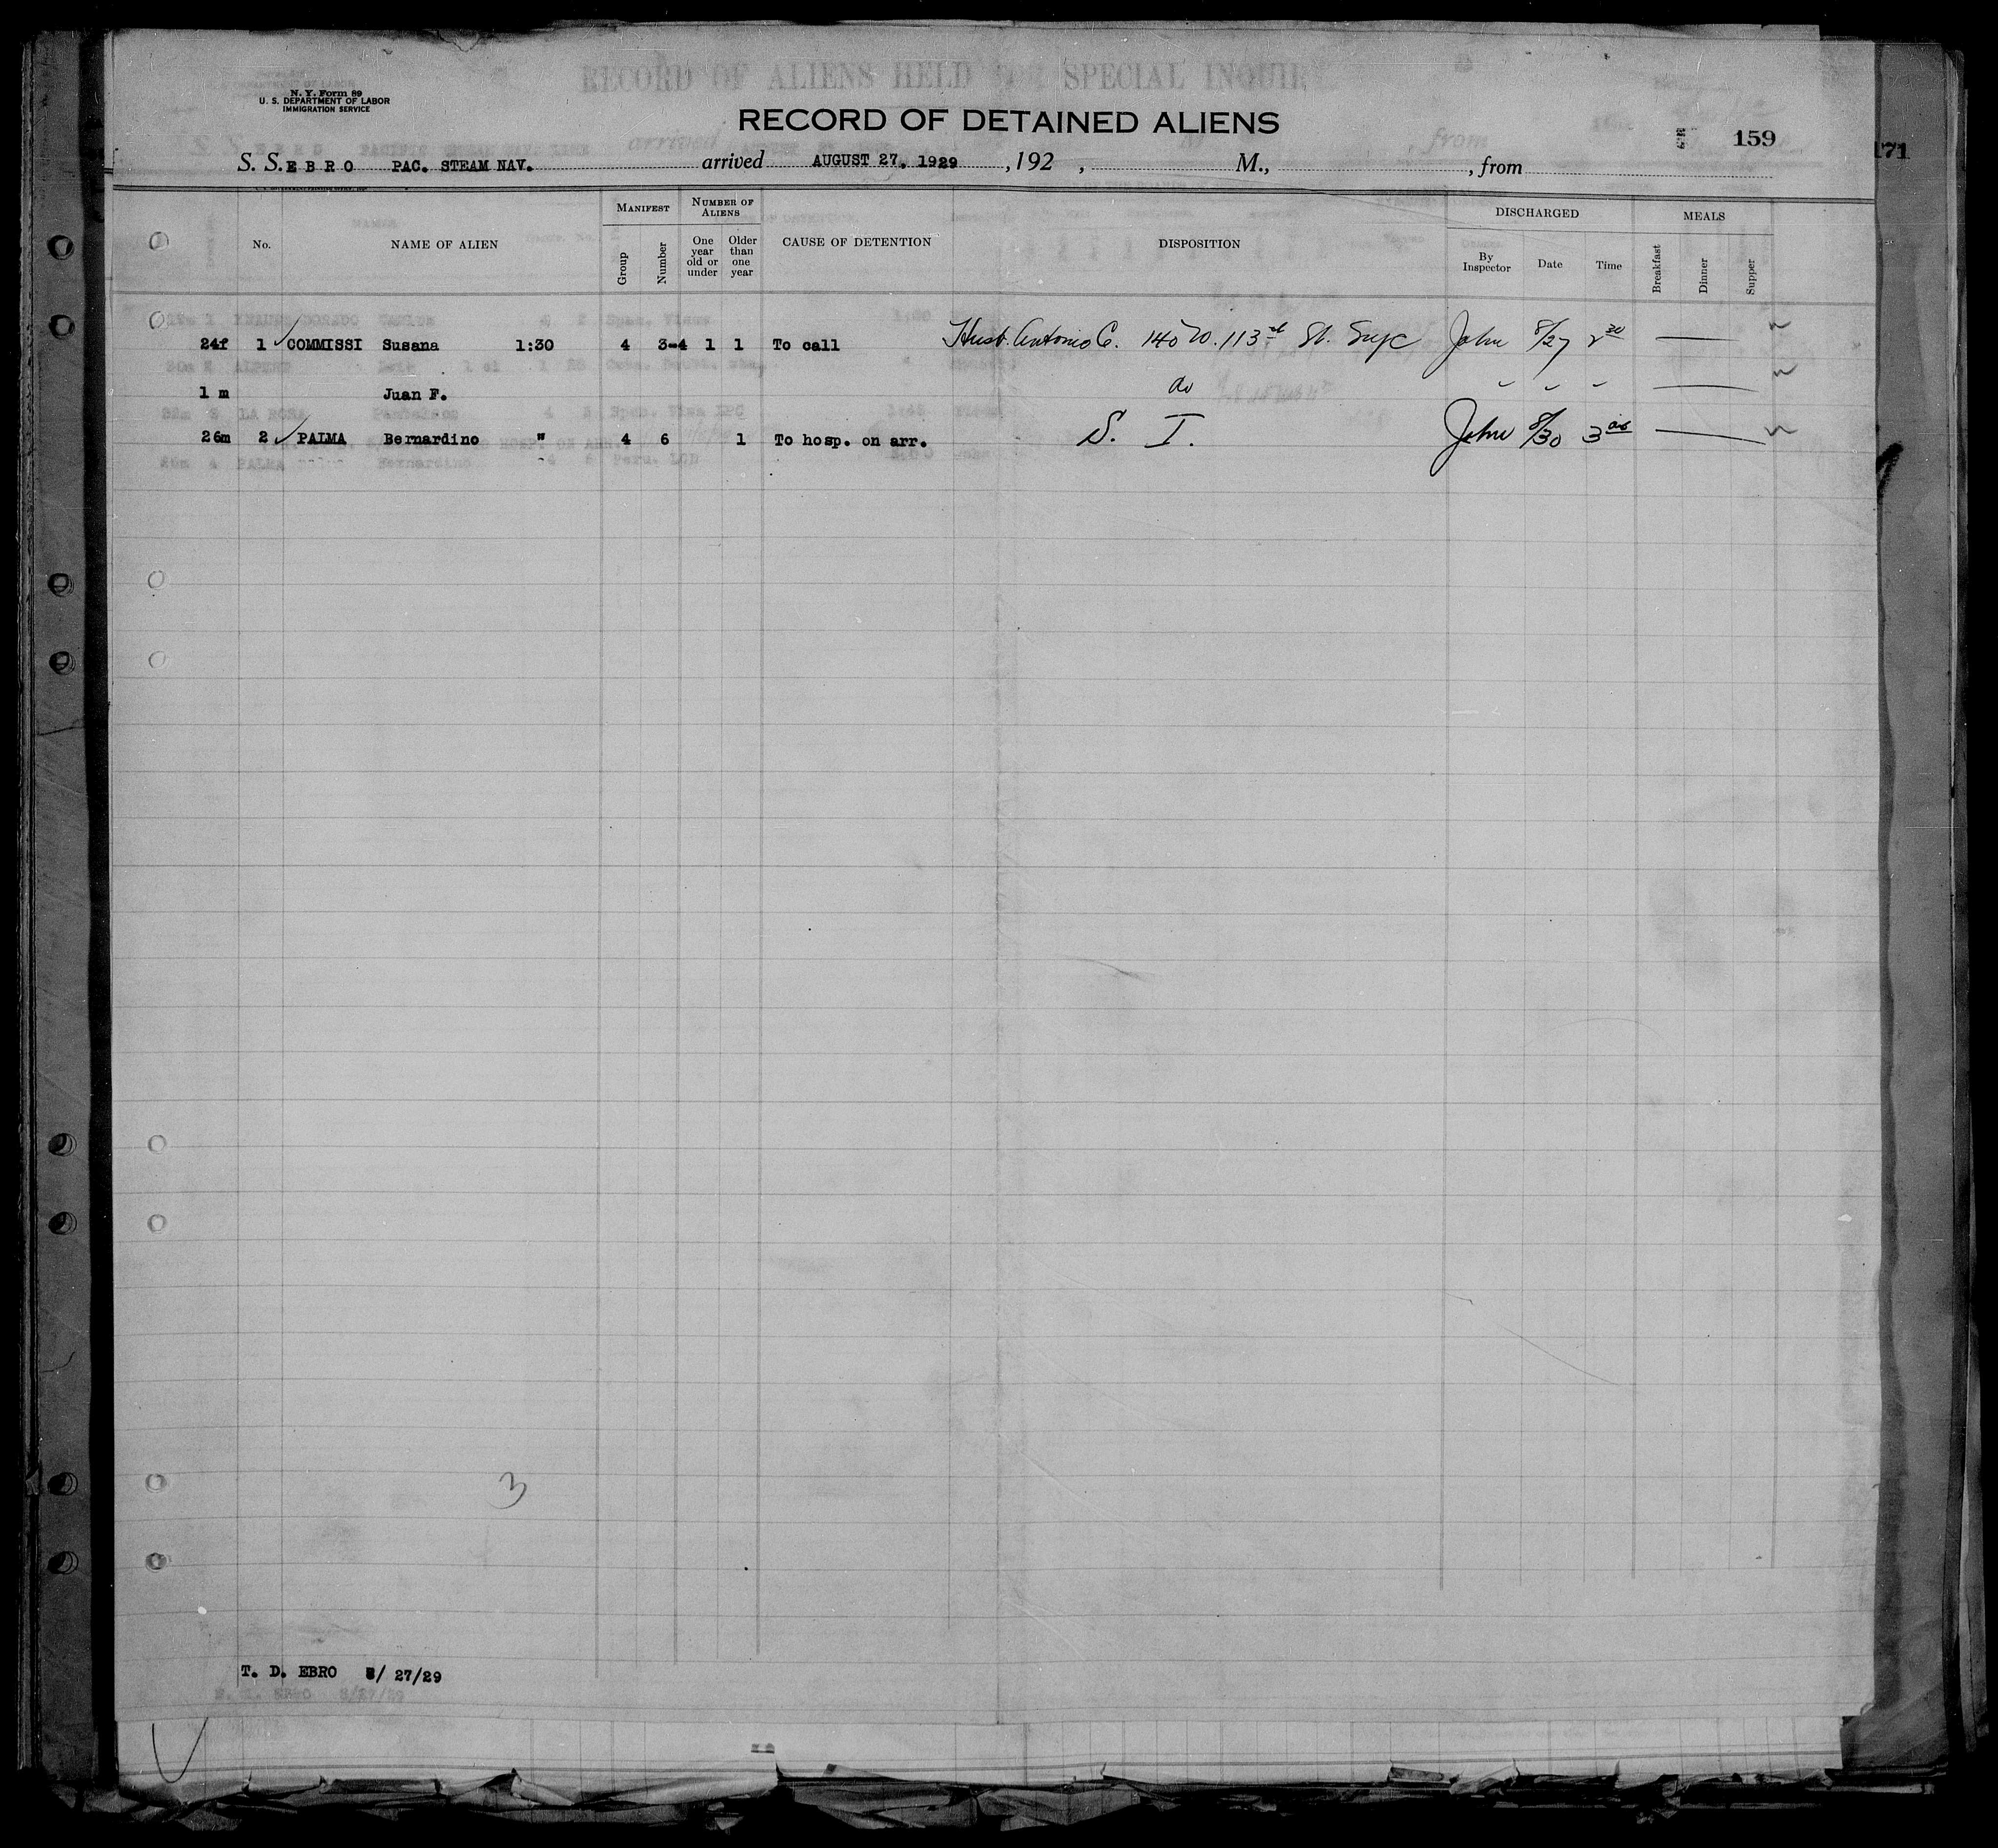 N. Y. Form 89
U. S. DEPARTMENT OF LABOR
IMMIGRATION SERVICE
RECORD OF ALIENS HELD FOR SPECIAL INQUIR
RECORD OF DETAINED ALIENS
159
171
S. S. EBRO PAC. STEAM NAV. arrived AUGUST 27, 1929 , 192 , M., , from
No. NAME OF ALIEN MANIFEST Group Number NUMBER OF ALIENS One year old or under Older than one year CAUSE OF DETENTION DISPOSITION DISCHARGED By Inspector Date Time MEALS Breakfast Dinner Supper
24f 1 COMMISSI Susana 1:30 4 3-4 1 1 To call Husb. Antonio C. 140 W. 113 St. John 8/27 2 30
1 m Juan F. do " " "
26m 2 PALMA Bernardino " 4 6 1 To hosp. on arr. S. I. John 8/30 3
3
T. D. EBRO 8/ 27/29
EBRO 8/27/29